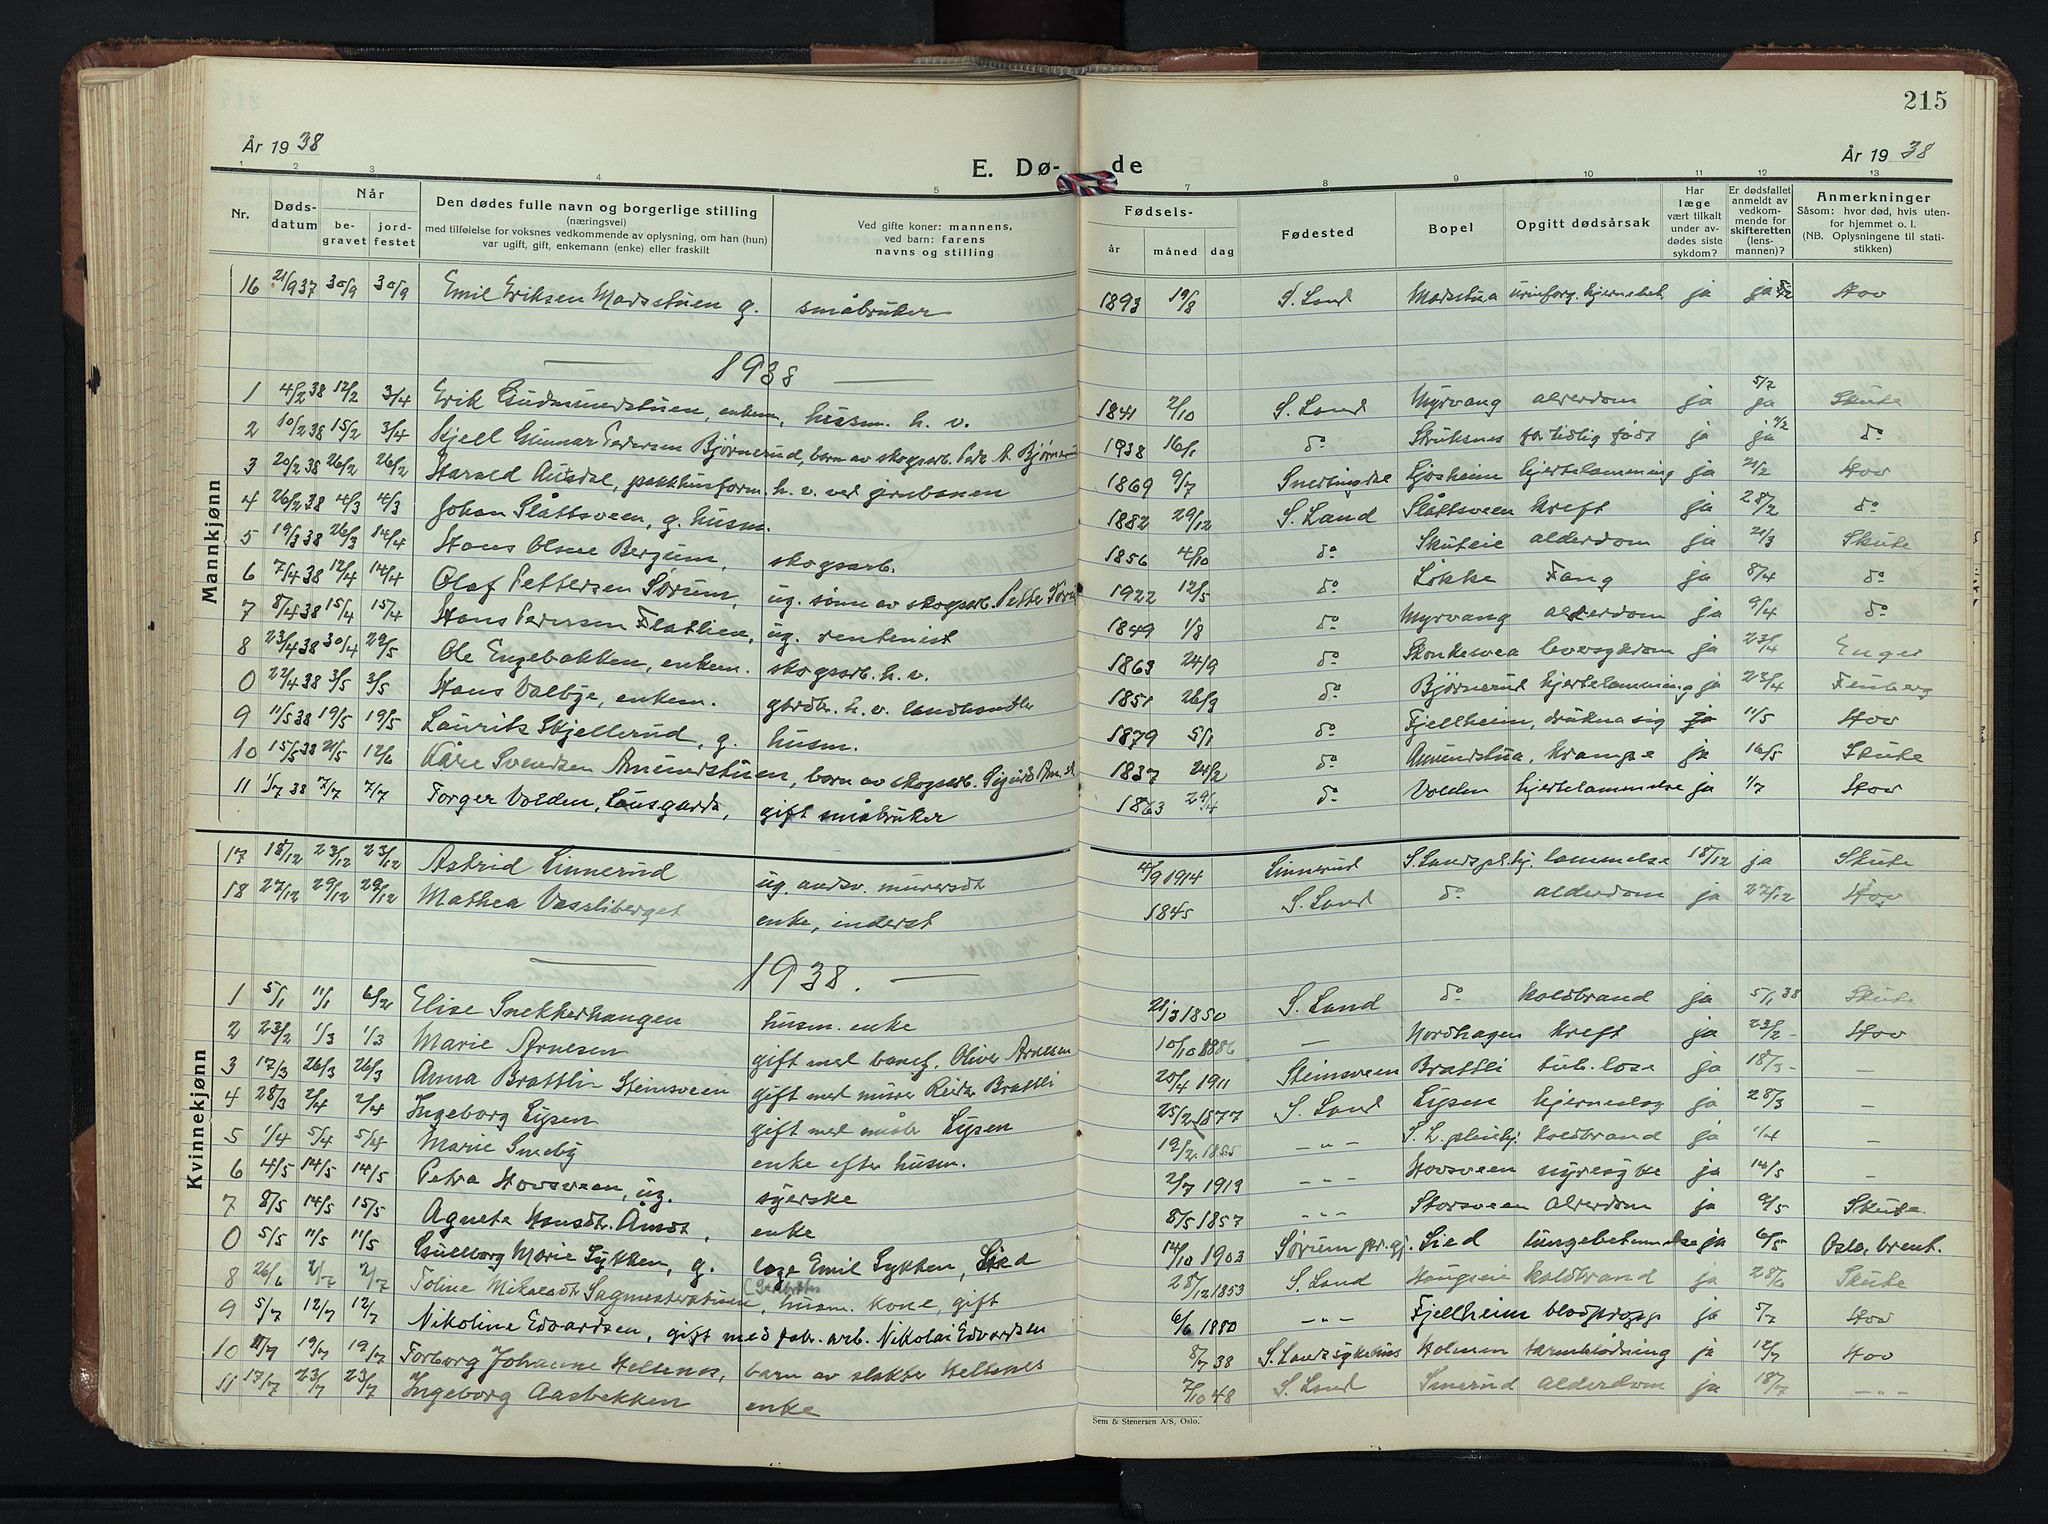 215
År 1938
E. Dø- de
År 1938
1 2 3 4 5 7 8 9 10 11 12 13
Nr.
Døds-datum
Når
be-gravet
jord-festet
Den dødes fulle navn og borgerlige stilling
(næringsvei)
med tilføielse for voksnes vedkommende av oplysning, om han (hun)
var ugift, gift, enkemann (enke) eller fraskilt
Ved gifte koner: mannens,
ved barn: farens
navns og stilling
Fødsels-
år måned dag
Fødested
Bopel
Opgitt dødsårsak
Har læge vært tilkalt under avdødes siste sykdom?
Er dødsfallet anmeldt av vedkommende for skifteretten (lensmannen)?
Anmerkninger
Såsom: hvor død, hvis utenfor hjemmet o. l.
(NB. Oplysningene til statistikken)
Mannkjønn
16 21/9 37 30/9 30/9 Emil Eriksen Madsstuen g. småbruker 1893 19/8 S. Land Madstua ja ja Hov
1938
1 4/2 38 12/2 3/4 Erik Gudmundstuen, enkem, husm. h. v. 1841 2/10 S. Land Myrvang alderdom ja 5/2 ja Skute
2 10/2 38 15/2 3/4 Kjell Gunnar Pedersen Bjørnerud, barn av skogsarb. 1938 16/1 do for tidlig født ja ja do
3 20/2 38 26/2 26/2 Harald h. v. ved jernbanen 1869 9/7 hjertelamming ja 21/2 Hov
4 26/2 38 4/3 4/3 Johan Slåttsveen, g. husm. 1882 29/12 S. Land Slåttsveen kreft ja 28/2 do
5 19/3 38 26/3 14/4 Hans Olsen Bergum, skogsarb. 1856 4/10 do alderdom ja 21/3 Skute
6 7/4 38 12/4 14/4 Olaf Pettersen Sørum, ug. sønn av skogsarb. Petter 1922 12/5 do Løkke ja 8/4 do
7 8/4 38 15/4 15/4 Hans Pedersen ug. rentenist 1849 1/8 do Myrvang alderdom ja 9/4 do
8 23/4 38 30/4 29/5 Ole Engebakken, enkem. skogsarb. h. v. 1863 24/9 do ja 23/4 Enger
0 22/4 38 3/5 3/5 Hans Valbye, enkem. gårdbr. h. v. landhandler 1851 26/9 do Bjørnerud hjertelamming ja 23/4 Fluberg
9 11/5 38 19/5 19/5 Laurits Skjellerud, g. husm. 1879 5/1 do Fjellheim, druknа sig ja 11/5 Hov
10 15/5 38 21/5 12/6 Kåre Svendsen Amundstuen, barn av skogsarb. Sigurd 1837 24/2 do Amundstua, krampe ja 16/5 Skute
11 1/7 38 7/7 7/7 Torger Volden, gift småbruker 1863 29/4 do Volden hjertelammelse ja 1/7 Hov
Kvinnekjønn
17 18/12 23/12 23/12 Astrid Linnerud ug. 4/9 1914 Linnerud S. Lands lammelse 18/12 ja Skute
18 27/12 29/12 29/12 Mathea enke, inderst 1845 S. Land do alderdom ja 27/12 Hov
1938.
1 5/1 11/1 6/2 Elise Snekkerhaugen husm. enke 21/3 1850 S. Land do koldbrand ja 5/1 38 Skute
2 23/2 1/3 1/3 Marie Arnesen gift med Oliver Arnesen 10/10 1886 — Nordhagen kreft ja 23/2 - Hov
3 17/3 26/3 26/3 Anna Brattli Steinsveen gift med murer Brattli 20/4 1911 Steinsveen Brattli ja 18/3 - —
4 28/3 2/4 2/4 Ingeborg Lysen gift med Lysen 25/2 1877 S. Land Lysen hjerneslag ja 28/3 —
5 1/4 5/4 5/4 Marie Smeby enke efter husm. 19/2 1885 -"- S. L. pleiehj. koldbrand ja 1/4 —
6 4/5 14/5 14/5 Petra Hovsveen, ug. syerske 2/7 1913 -"- Hovsveen nyresyke ja 14/5 —
7 8/5 14/5 15/5 Agnete Hansdt. enke 8/5 1857 -"- alderdom ja 9/5 Skute
0 5/5 11/5 11/5 Gudborg Marie Lykken, g. Emil Lykken, Lied 14/10 1903 Sørum Lied lungebetennelse ja 6/5 Oslo, brent.
8 26/6 2/7 2/7 Toline husm. kone, gift 28/12 1853 S. Land koldbrand ja 28/6 Skute
9 5/7 12/7 12/7 Nikoline Edvardsen, gift med fabr. arb. Nikolai Edvardsen 6/6 1880 -"- Fjellheim blodpropp ja 5/7 Hov
10 19/7 19/7 Torborg Johanne Hellenes, barn av slakter Hellenes 8/7 38 S. Lands sykehus Holmen tarmblødning ja 12/7 Hov
11 17/7 23/7 23/7 Ingeborg Aasbekken enke 7/10 48 S. Land Smerud alderdom ja 18/7 -"-
Sem & Stenersen A/S, Oslo.